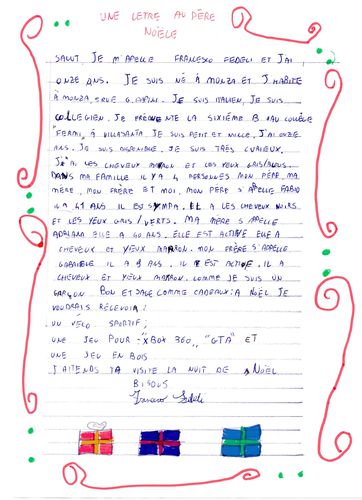 UNE LETRE AU PÈRE
NOËLE
SALUT, JE M'APELLE FRANCESCO FEDELI ET J'AI
ONZE ANS. JE SUIS NÉ À MONZA ET J'HABITE
À MONZA, RUE G. JE SUIS ITALIEN, JE SUIS
COLLEGIEN. JE FREQUENTE LA SIXIÈME B AU COLLÈGE
"FERMI" À VILLASANTA. JE SUIS PETIT ET J'AI ONZE
ANS. JE SUIS DISPONIBLE. JE SUIS TRÈS CURIEUX.
J'AI LES CHEVEUX MARRON ET LES YEUX GRIS/BLEUS.
DANS MA FAMILLE IL Y A 4 PERSONNES MON PÉRE, MA
MÈRE, MON FRÈRE ET MOI. MON PÈRE S'APELLE FABIO
IL A 41 ANS. IL EST SYMPA. EL A LES CHEVEUX NOIRS
ET LES YEUX GRIS/VERTS. MA MÈRE S'APPELLE
ADRIANA ELLE A 40 ANS. ELLE EST ACTIVE ELLE A
CHEVEUX ET YEUX MARRON. MON FRÈRE S'APPELLE
GABRIELE IL A 8 ANS. IL EST ACTIVE. IL A
CHEVEUX ET YEUX MARRON. COMME JE SUIS UN
GARÇON BON ET SAGE COMME CADEAUX À NOËL JE
VOUDRAIS RECEVOIR:
UN VÉLO SPORTIF;
UNE JEU POUR "XBOX 360", "GTA" ET
UNE JEU EN BOIS
J'ATTENDS TA VISITE LA NUIT DE NOËL
BISOUS
Francesco Fedeli